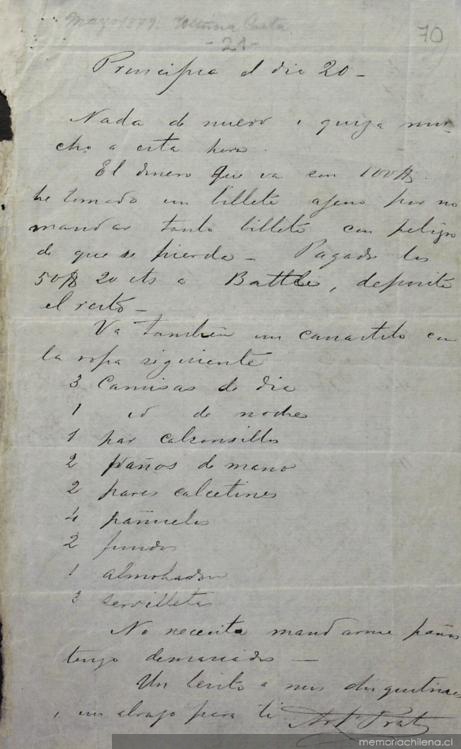 Mayo 1879. Ultima Carta
70
- 21 -
Principia el dia 20 -
Nada de nuevo i quiza mu-
cho a esta hora.
El dinero que va son 100$.
he tomado un billete ajeno por no
mandar tanto billete con peligro
de que se pierda - Pagado los
50$ 20 cts a Battle, deposita
el resto -
Va tambien un canastito con
la ropa siguiente
3 Camisas de dia
1 id de noche
1 par calzoncillos
2 paños de mano
2 pares calcetines
4 pañuelos
2 fundas
1 almohadon
3 servilletas
No necesita mandarme paños
tengo demasiados -
Un besito a mis chiquitines
i un abrazo para ti Art. Prat
www.memoriachilena.cl